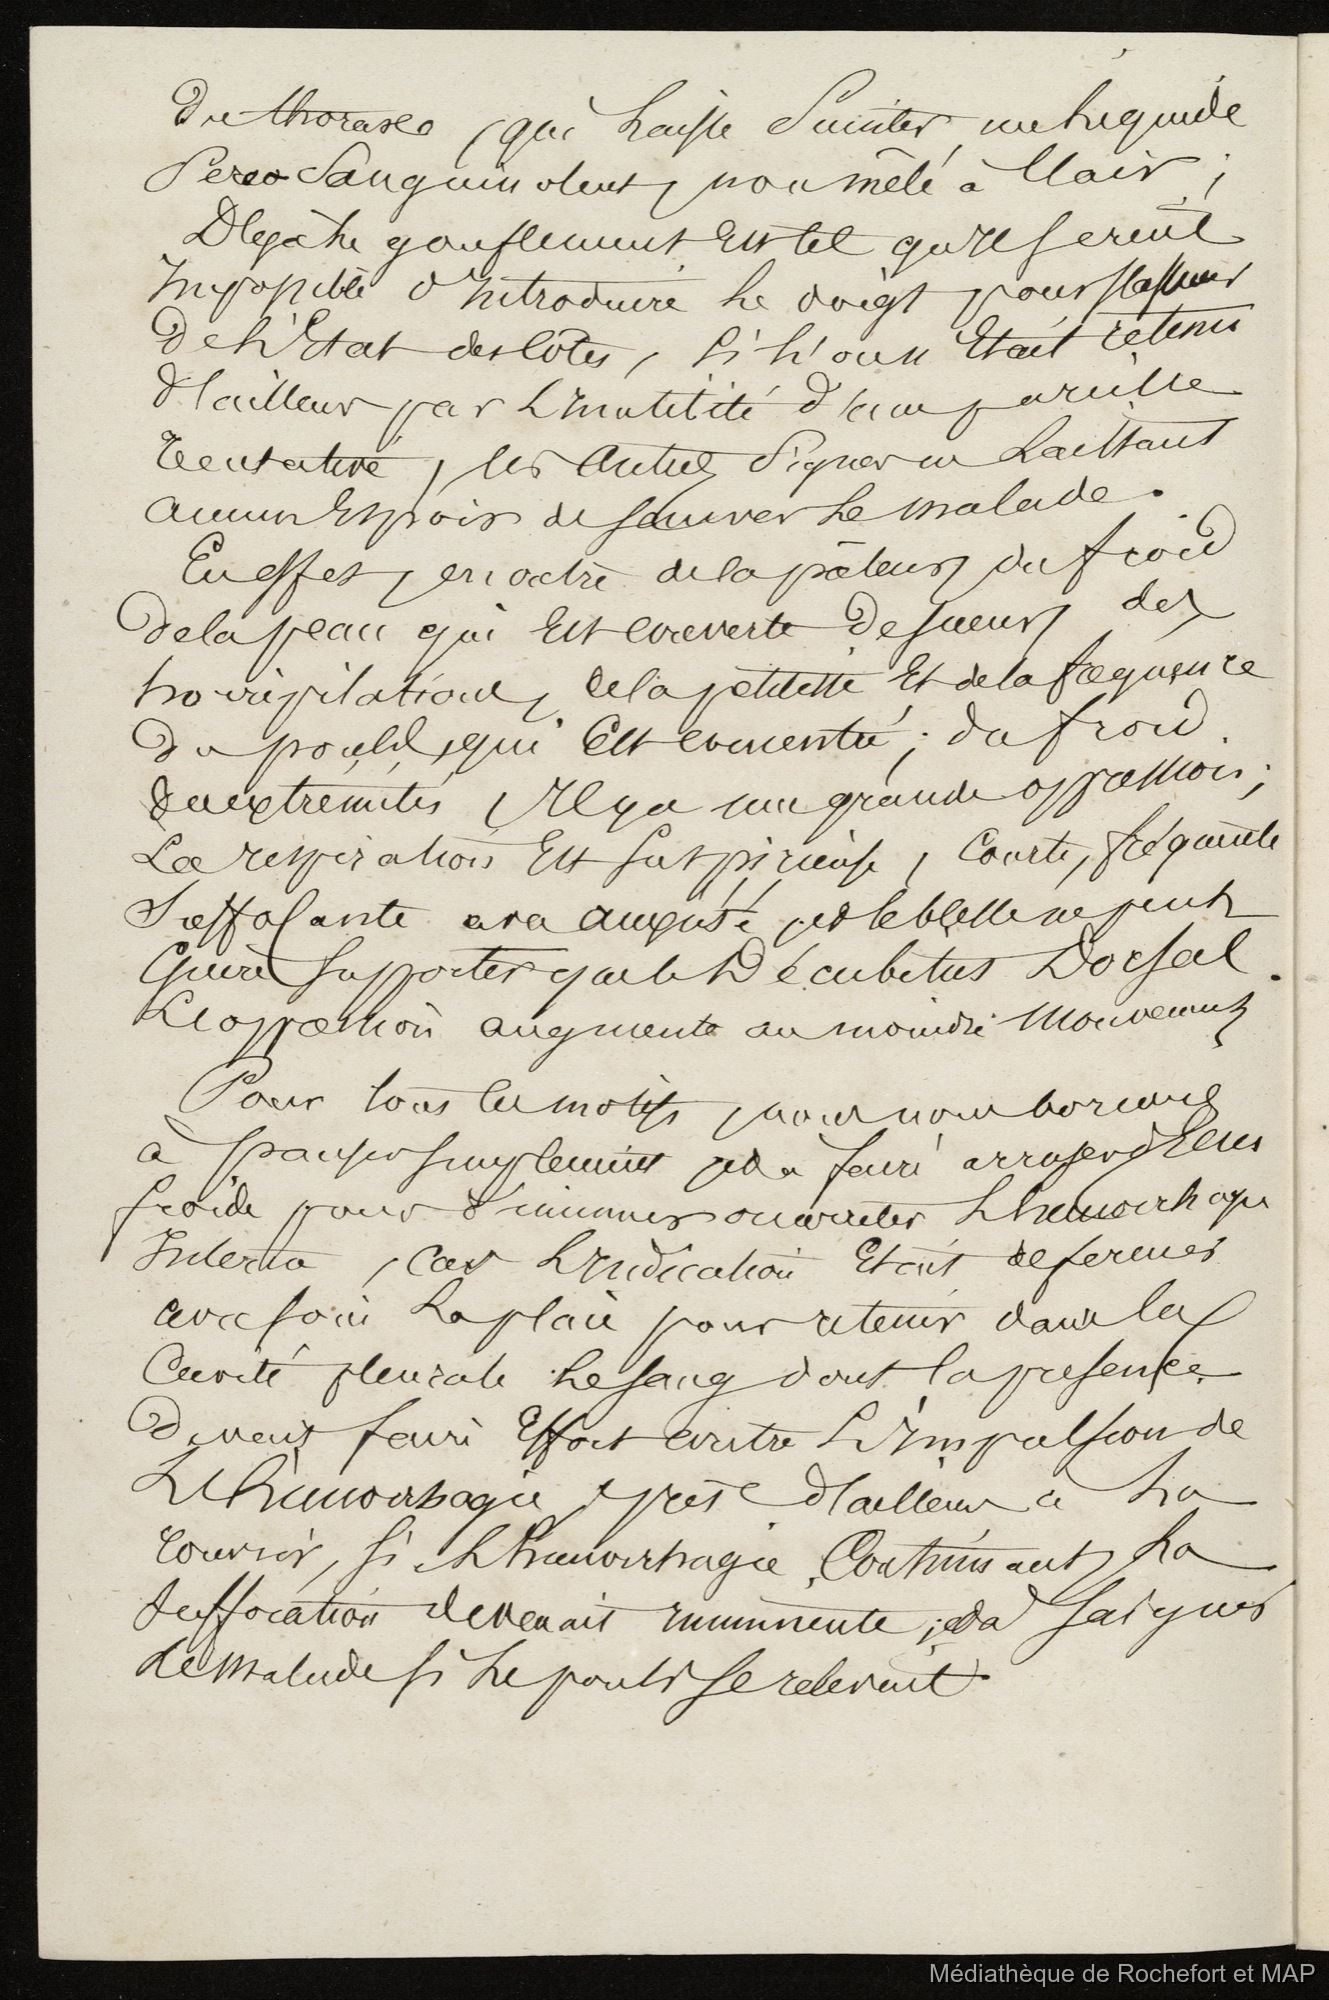 Du thorax, qui laisse suinter un liquide
séreo Sanguinolent, non mêlé à l'air ;
Déjà le gonflement Est tel qu'Il serait
Impossible d'Introduire le doigt pour s'assurer
De L'Etat des Côtes, si L'on n'Etait retenu
d'ailleurs par L'Inutilité d'une pareille
tentative, les Autres Signes ne Laissant
aucun Espoir de sauver Le malade.
En effet, en outre de la pâleur, du froid
De la peau qui Est couverte De sueur, des
horripilations, de la petitesse Et de la fréquence
Du pouls, qui Est concentré ; du froid
des extrémités, Il y a une grande oppression ;
La respiration Est suspirieuse, Courte, fréquente
Suffocante avec anxiété, et le blessé ne peut
Guère supporter que le Décubitus Dorsal.
L'oppression augmente au moindre Mouvement
Pour tous ces motifs, nous nous bornons
à panser simplement et à faire arroser d'Eau
froide pour diminuer ou arrêter L'hémorrhagie
Interne, Car L'Indication Etait de fermer
avec soin La plaie pour retenir dans la
Cavité pleurale Le sang dont la présence
Devait faire Effort contre L'Impulsion de
L'hémorrhagie, prêt d'ailleurs à La
rouvrir, si L'hémorrhagie Continuant, La
suffocation devenait imminente, et à saigner
Le Malade si Le pouls se relevait.
Médiathèque de Rochefort et MAP